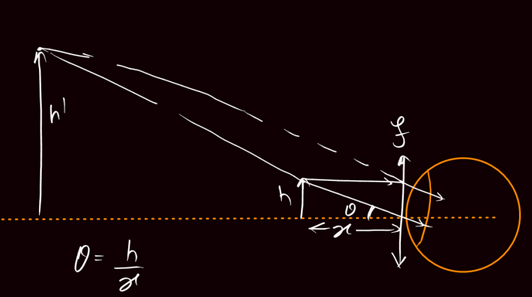 h'
f
h
θ
x
θ = h/x